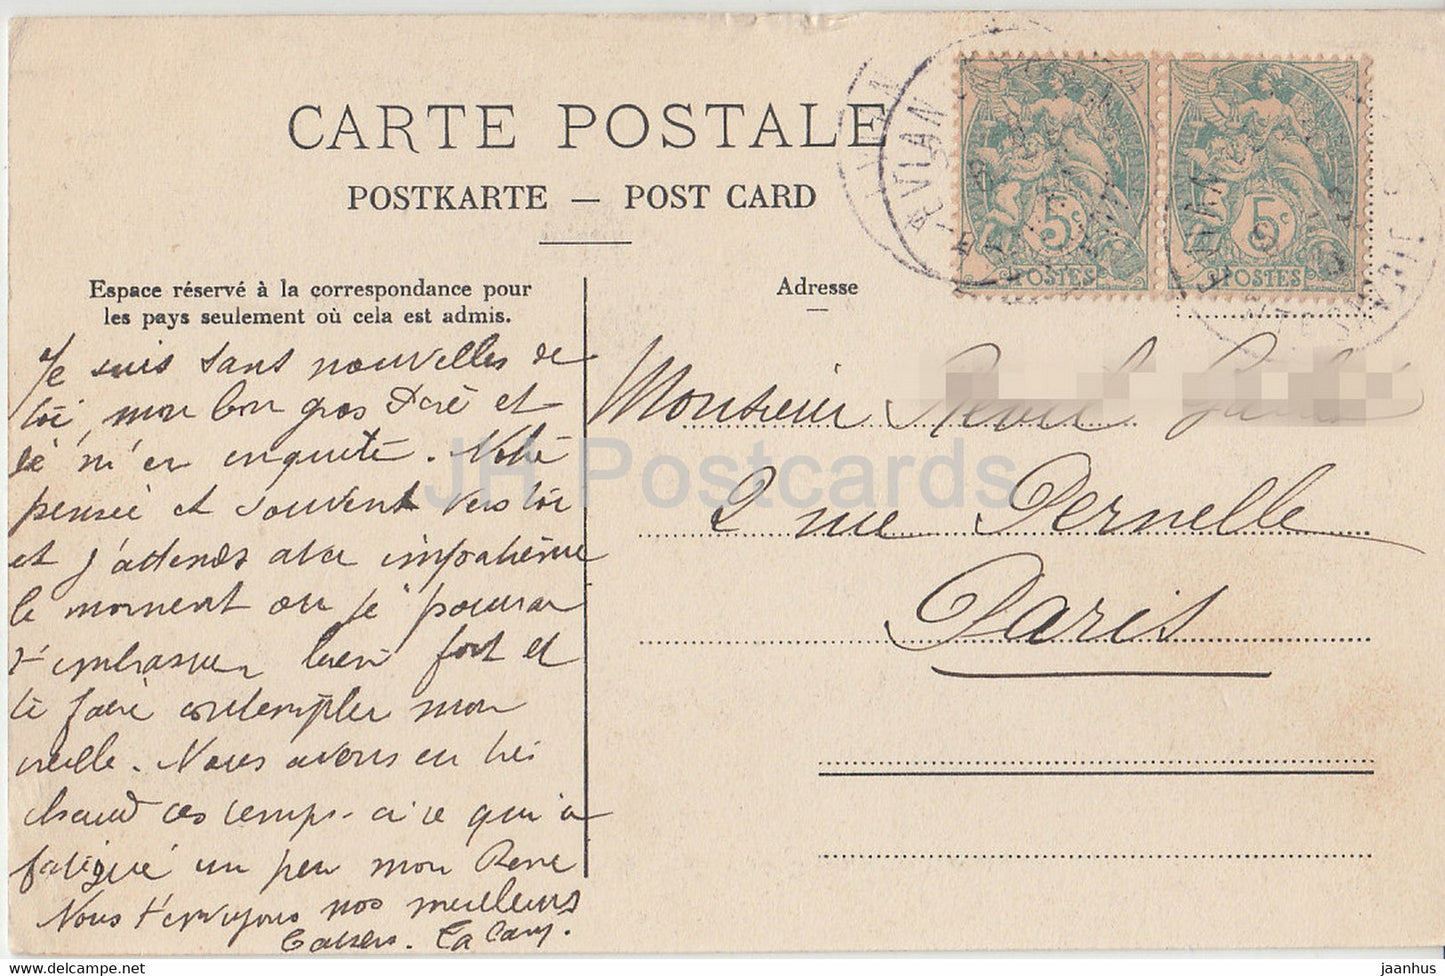 CARTE POSTALE
POSTKARTE — POST CARD
Espace réservé à la correspondance pour
les pays seulement où cela est admis.
Adresse
EVIAN
5c
POSTES
5c
POSTES
Je suis sans nouvelles de
toi, mon bon gros et
m'en inquiète. Notre
pensée et souvent vers toi
et j'attends avec impatience
le moment ou je pourrai
t'embrasser bien fort et
te faire contempler mon
. Nous avons eu très
chaud ces temps-ci ce qui a
fatigué un peu mon René
Nous t'envoyons nos meilleurs
baisers.
Monsieur
2 rue Pernelle
Paris
JH Postcards
hip.postimees.ee